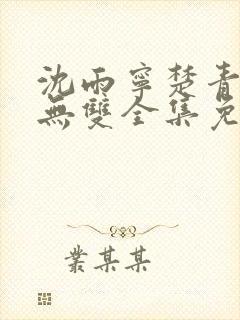 沈雨寧楚青
無雙全集免
叢某某